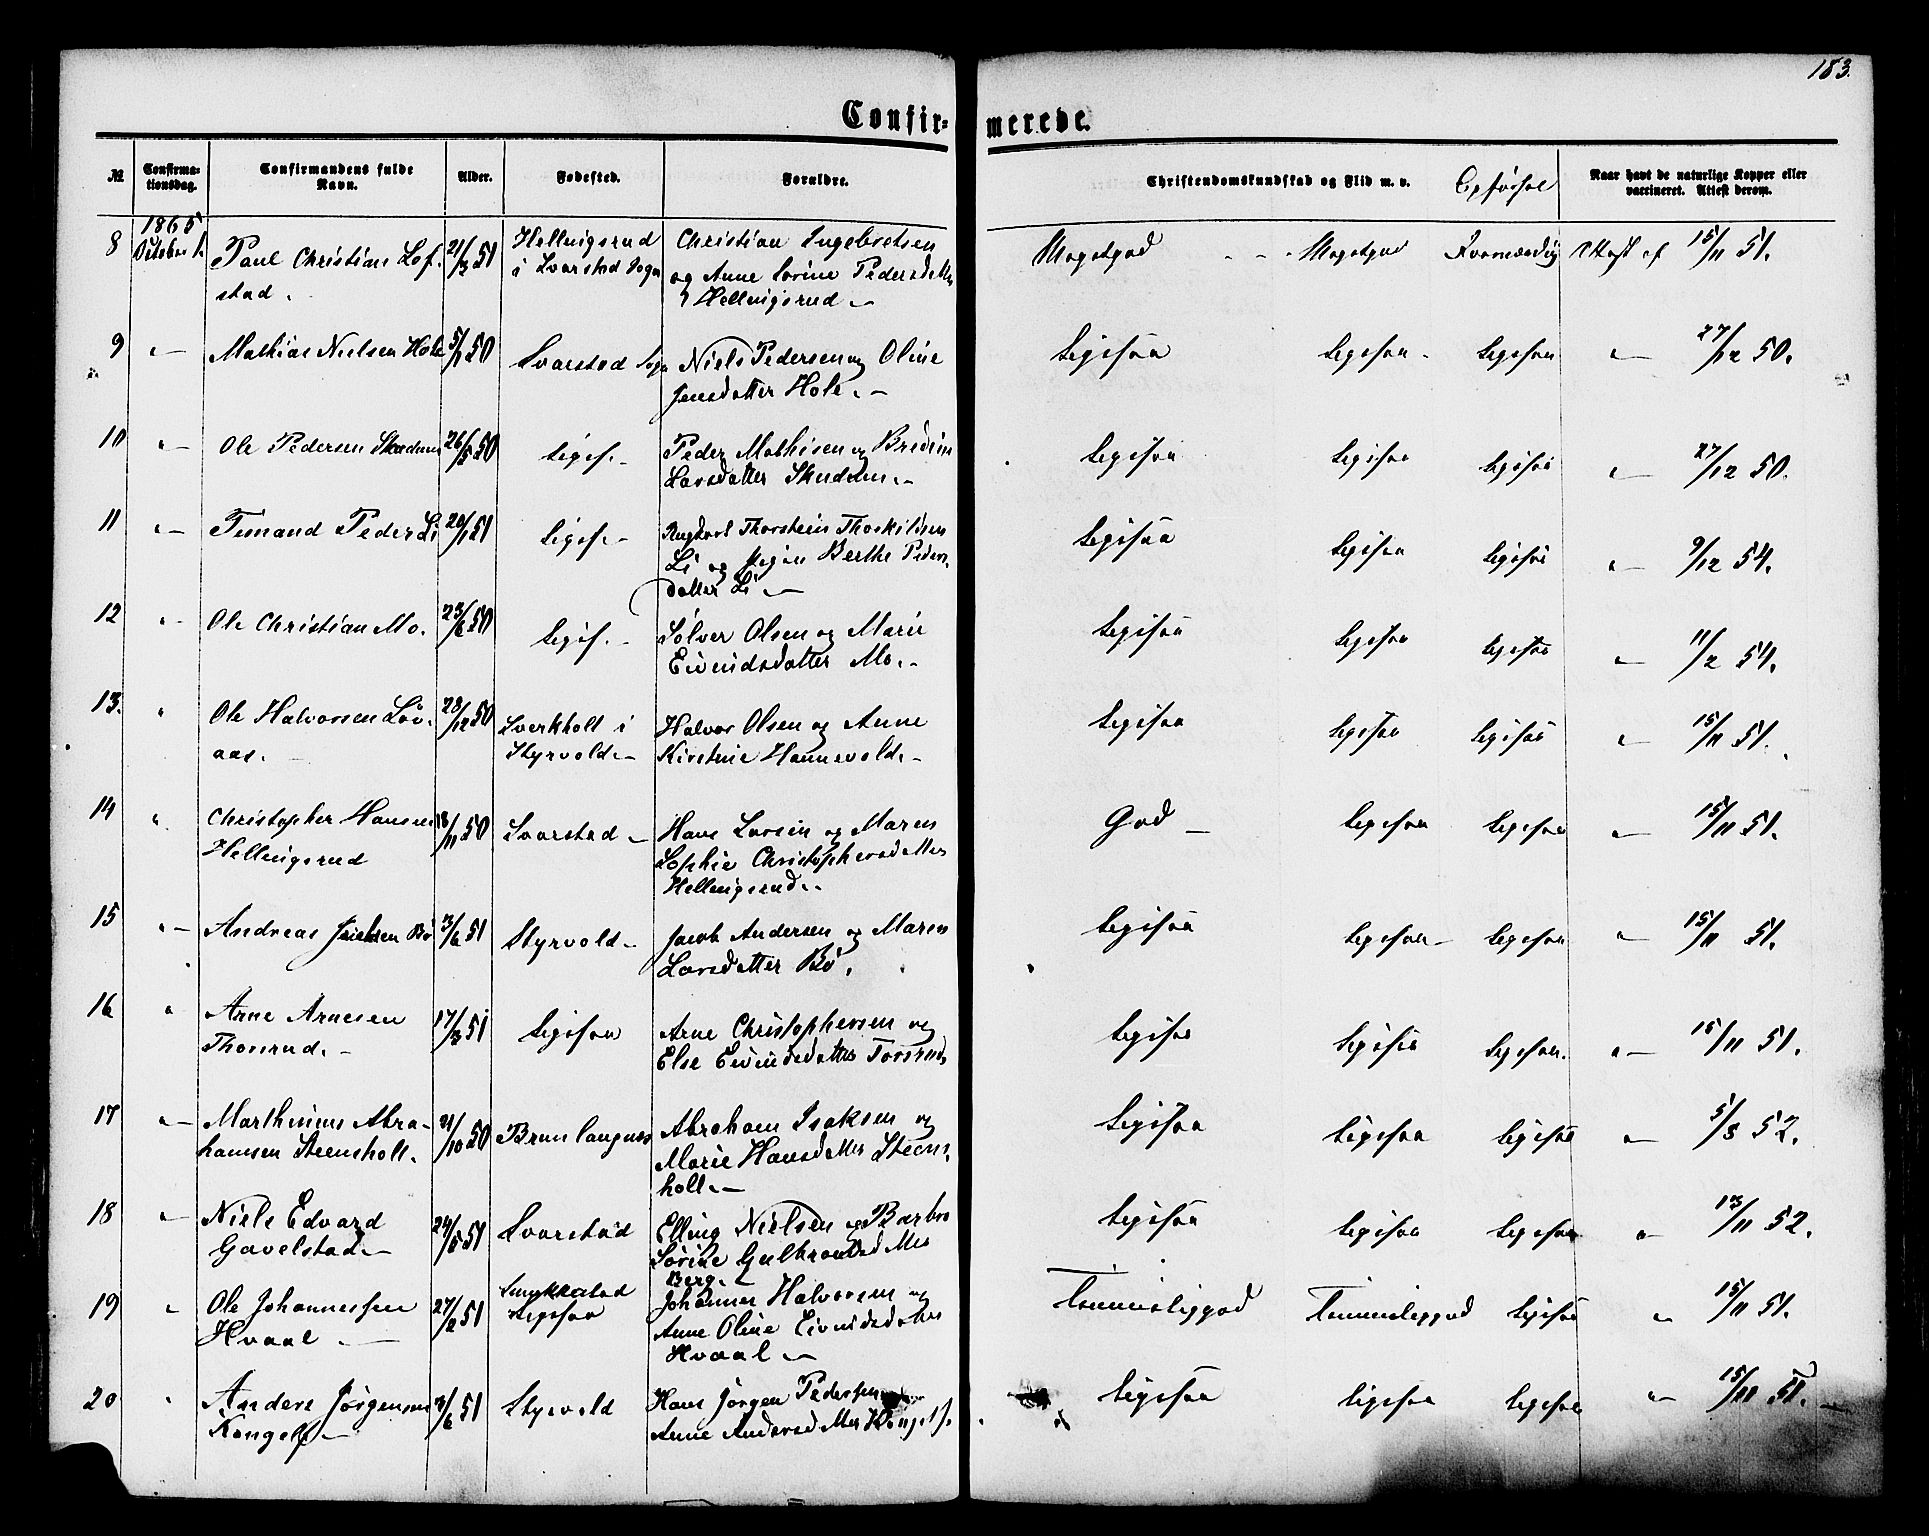 183.
Confir-
merede.
№
Confirma-
tionsdag.
Confirmandens fulde
Navn.
Alder.
Fødested.
Forældre.
Christendomskundskab og Flid m. v.
Opførsel
Naar havt de naturlige Kopper eller
vaccineret. Attest derom.
1865
October 1.
8 Paul Christian Lof- 21/3 51 Hellnigsrud Christian Ingebretsen Megetgod - - Megetgod Attest af 15/11 51.
stad. i Svarstad Sogn og Anne Sørine Pedersdatter
Hellnigsrud
9 " Mathias Nielsen Hole 5/1 50 Svarstad Sogn Niels Pedersen og Oline Ligesaa Ligesaa Ligesaa " 27/12 50.
Jensdatter Hole.
10 " Ole Pedersen 26/5 50 Liges. Peder Mathisen og Ligesaa Ligesaa ligesaa " 27/12 50.
Larsdatter
11 " Timand Peder Li 20/1 51 Liges. Thorstein Thorkildsen Ligesaa Ligesaa ligesaa " 9/12 54.
Li og Berthe Peders-
datter Li
12 " Ole Christian Mo. 23/6 50 Liges. Sølver Olsen og Marie Ligesaa Ligesaa ligesaa " 11/2 54.
Eivindsdatter Mo.
13. " Ole Halvorsen Løv- 28/12 50 Sverkholt i Halvor Olsen og Anne Ligesaa Ligesaa ligesaa " 15/11 51.
aas. Styrvold Kirstine Hannevold.
14 " Christopher Hansen 18/11 50 Svarstad Hans Larsen og Maren God Ligesaa ligesaa " 15/11 51.
Hellnigsrud Sophie Christophersdatter
Hellnigsrud.
15 " Andreas Bø 3/6 51 Styrvold Jacob Andersen og Maren Ligesaa Ligesaa ligesaa " 15/11 51.
Larsdatter Bø.
16 " Arne Arnesen 17/3 51 Ligesaa Arne Christophersen og Ligesaa Ligesaa ligesaa. " 15/11 51.
Thorsrud. Else Eivindsdatter Torsrud
17 " Marthinius Abra- 21/10 50 Brunlangnæs Abraham Isaksen og Ligesaa Ligesaa ligesaa " 5/8 52.
hamsen Steensholt. Marie Hansdatter Steens-
holt.
18 " Niels Edvard 24/5 51 Svarstad Elling Nielsen og Barbro Ligesaa Ligesaa Ligesaa " 13/11 52.
Gavelstad. Sørine Gulbrandsdatter
Berg.
19 " Ole Johannessen 27/2 51 Ligesaa Johannes Halvorsen og Temmeliggod Temmeliggod ligesaa " 15/11 51.
Hvaal. Anne Oline Eivindsdatter
Hvaal
20 " Anders Jørgensen 3/6 51 Styrvold Hans Jørgen Pedersen Ligesaa ligesaa ligesaa " 15/11 51.
Kongelf Anne Andersdatter Kongelf.